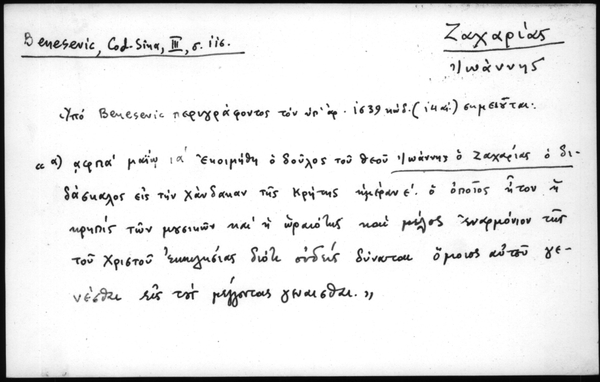 Benesevic, Cod. Sina, III, σ. 116.
Ζαχαρίας
Ἰωάννης
Ὑπὸ Benesevic περιγράφοντος τὸν ὑπ' ἀρ. 1539 κώδ. ( ) σημειοῦται:
« α) αφπα' μαΐῳ ια' Ἐκοιμήθη ὁ δοῦλος τοῦ θεοῦ Ἰωάννης ὁ Ζαχαρίας ὁ δι-
δάσκαλος εἰς τὴν Χάνδακαν τῆς Κρήτης ἡμέραν ε'. ὁ ὁποῖος ἦτον ἡ
κρηπὶς τῶν μουσικῶν καὶ ἡ ὡραιότης καὶ μέλος ἐναρμόνιον τῆς
τοῦ Χριστοῦ ἐκκλησίας διότι οὐδεὶς δύναται ὅμοιος αὐτοῦ γε-
νέσθαι εἰς τοὺς μέλλοντας γενέσθαι. »